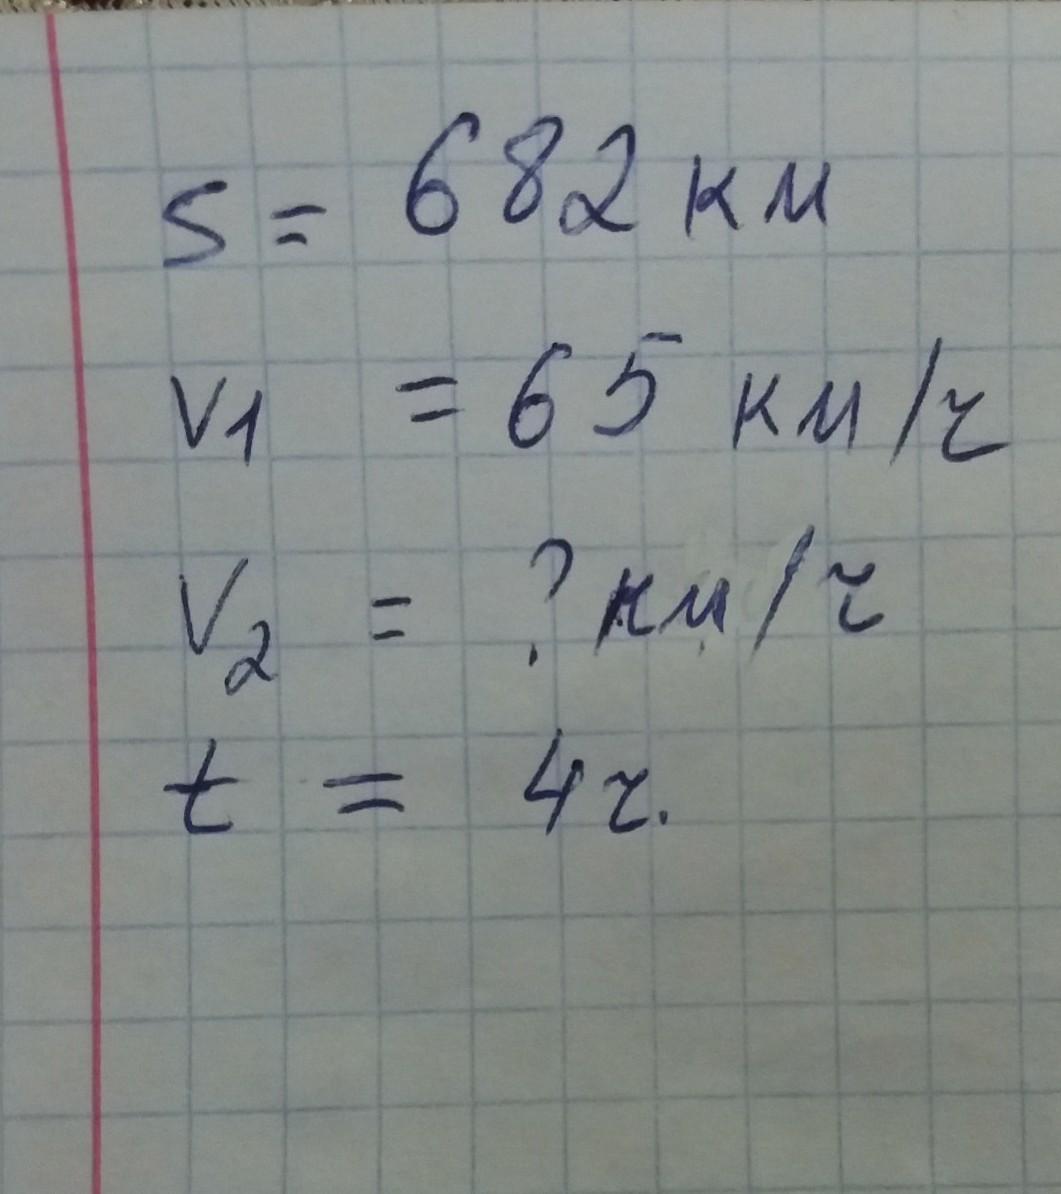 S = 682 км
V1 = 65 км/ч
V2 = ? км/ч
t = 4ч.